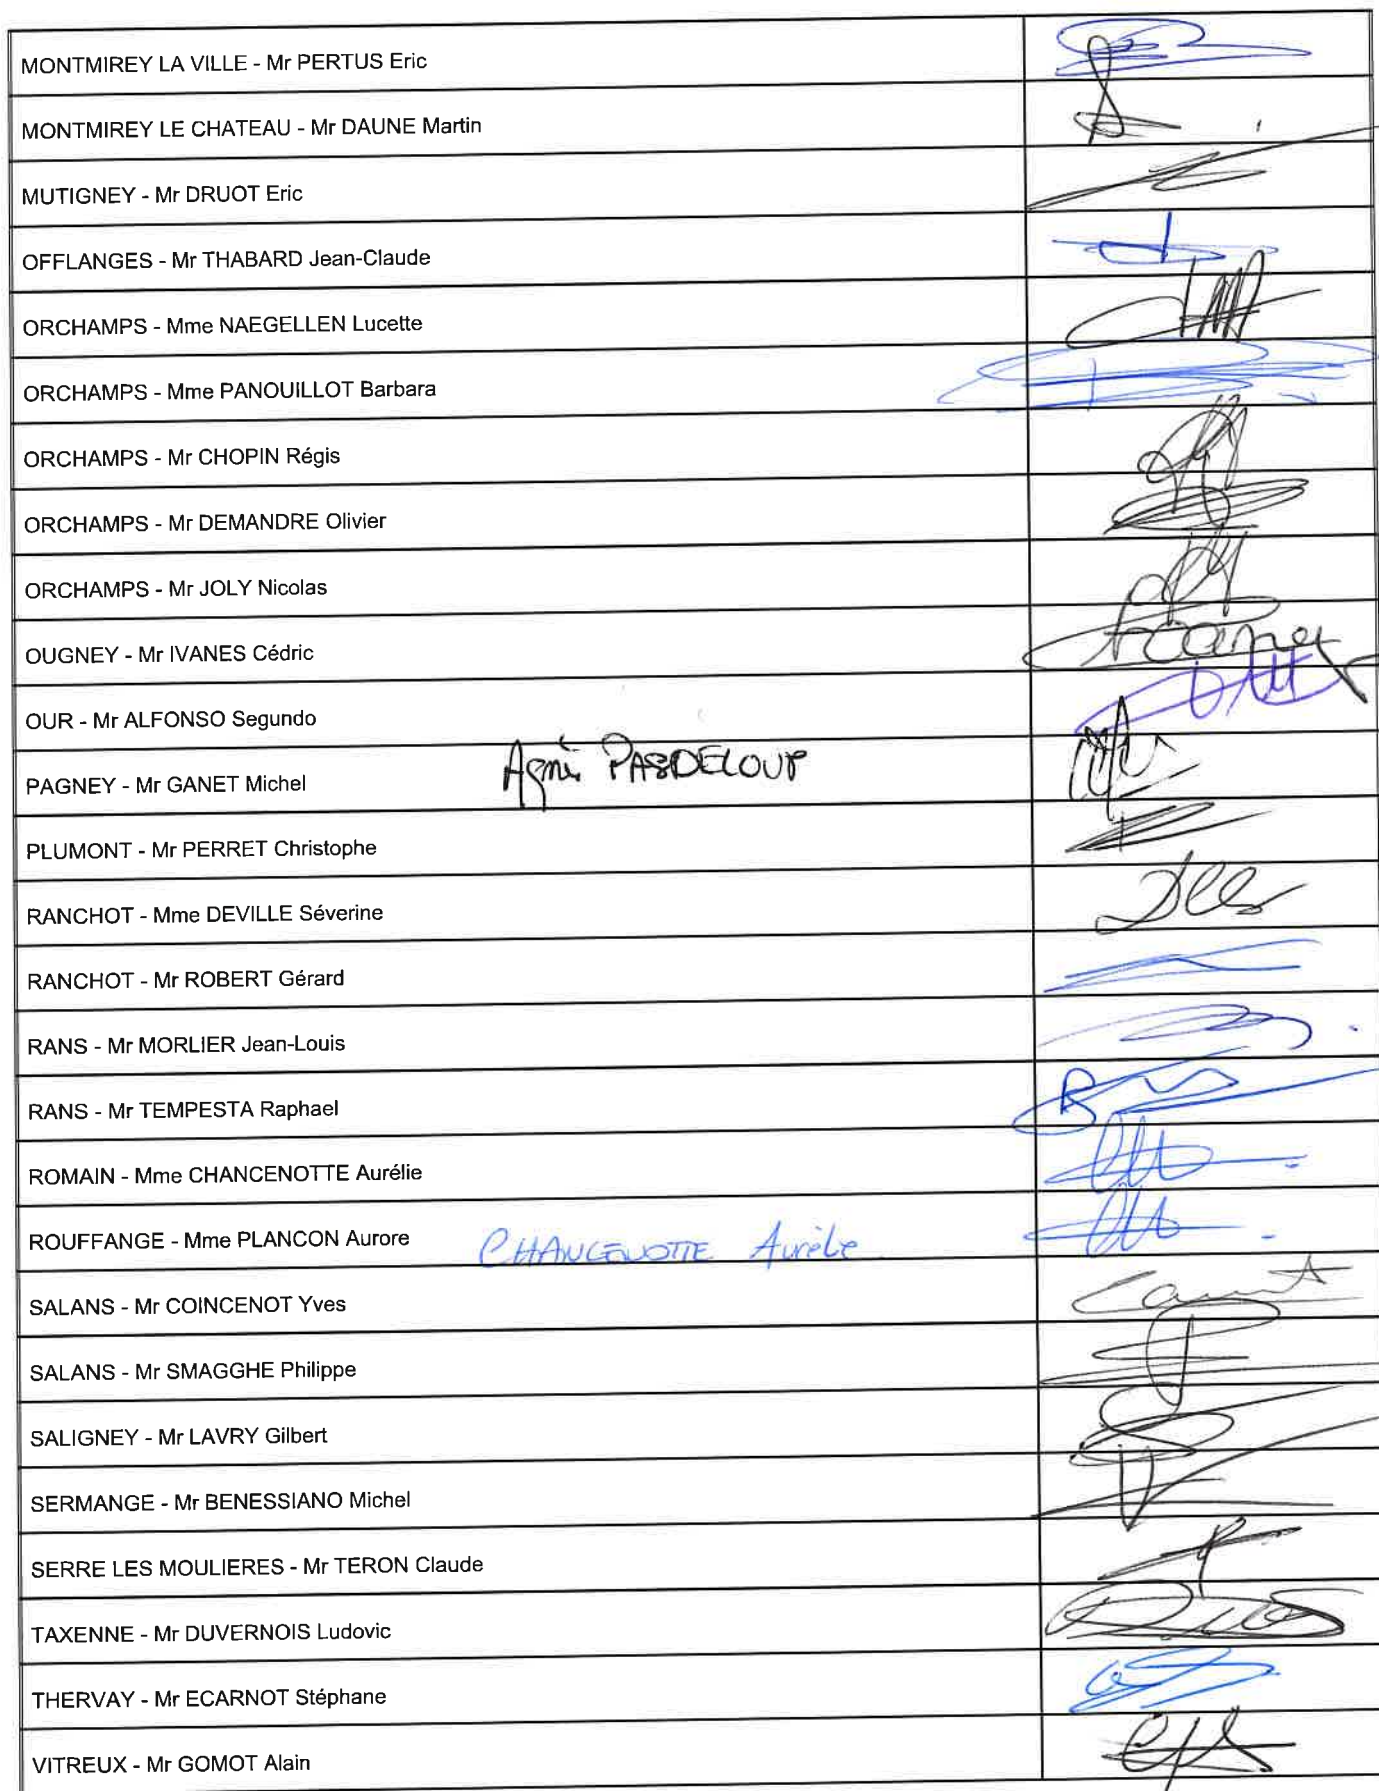 MONTMIREY LA VILLE - Mr PERTUS Eric
MONTMIREY LE CHATEAU - Mr DAUNE Martin
MUTIGNEY - Mr DRUOT Eric
OFFLANGES - Mr THABARD Jean-Claude
ORCHAMPS - Mme NAEGELLEN Lucette
ORCHAMPS - Mme PANOUILLOT Barbara
ORCHAMPS - Mr CHOPIN Régis
ORCHAMPS - Mr DEMANDRE Olivier
ORCHAMPS - Mr JOLY Nicolas
OUGNEY - Mr IVANES Cédric
OUR - Mr ALFONSO Segundo
PAGNEY - Mr GANET Michel PASDELOUP
PLUMONT - Mr PERRET Christophe
RANCHOT - Mme DEVILLE Séverine
RANCHOT - Mr ROBERT Gérard
RANS - Mr MORLIER Jean-Louis
RANS - Mr TEMPESTA Raphael
ROMAIN - Mme CHANCENOTTE Aurélie
ROUFFANGE - Mme PLANCON Aurore CHANCENOTTE Aurélie
SALANS - Mr COINCENOT Yves
SALANS - Mr SMAGGHE Philippe
SALIGNEY - Mr LAVRY Gilbert
SERMANGE - Mr BENESSIANO Michel
SERRE LES MOULIERES - Mr TERON Claude
TAXENNE - Mr DUVERNOIS Ludovic
THERVAY - Mr ECARNOT Stéphane
VITREUX - Mr GOMOT Alain